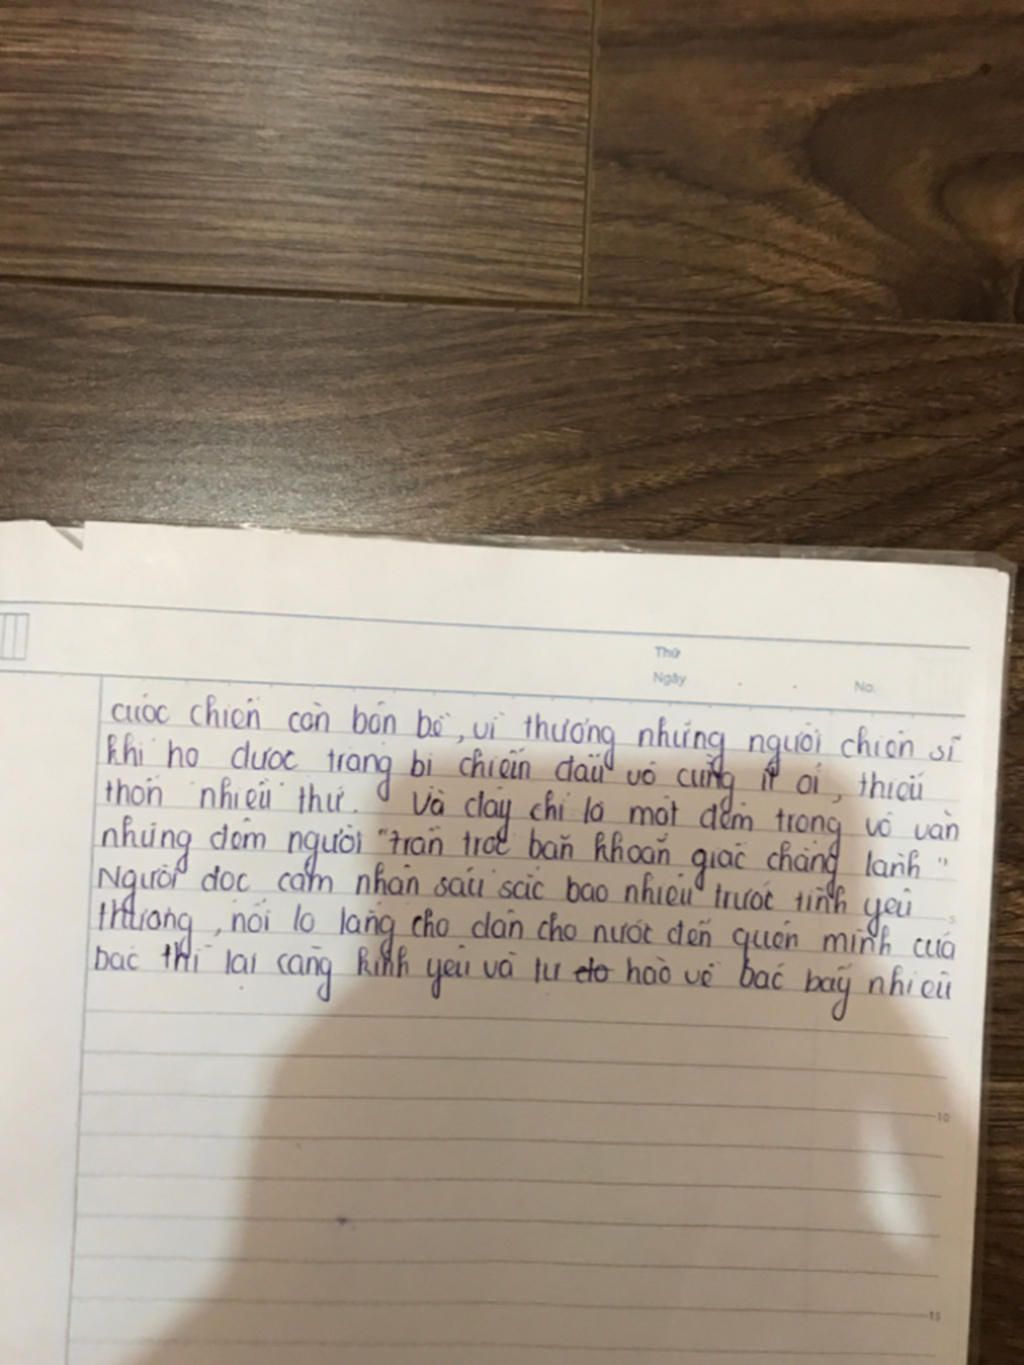 Thứ
Ngày . . No.
cuộc chiến còn bộn bề, vì thương những người chiến sĩ
khi họ được trang bị chiến đấu vô cùng ít ỏi, thiếu
thốn nhiều thứ. Và đây chỉ là một đêm trong vô vàn
những đêm người "trằn trọc băn khoăn giấc chẳng lành"
Người đọc cảm nhận sâu sắc bao nhiêu trước tình yêu
thương, nỗi lo lắng cho dân cho nước đến quên mình của
bác thì lại càng kính yêu và tự do hào về bác bấy nhiêu
5
10
15